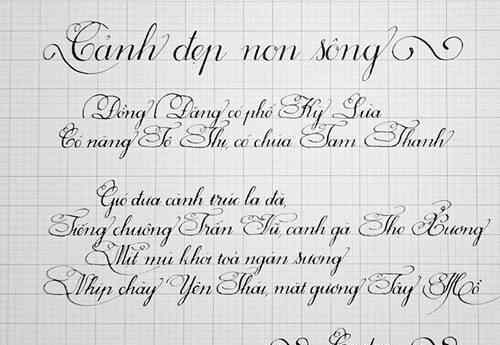 Cảnh đẹp non sông
Đồng Đăng có phố Kỳ Lừa
Có nàng Tô Thị, có chùa Tam Thanh
Gió đưa cành trúc la đà,
Tiếng chuông Trấn Vũ, canh gà Thọ Xương
Mịt mù khói toả ngàn sương
Nhịp chày Yên Thái, mặt gương Tây Hồ